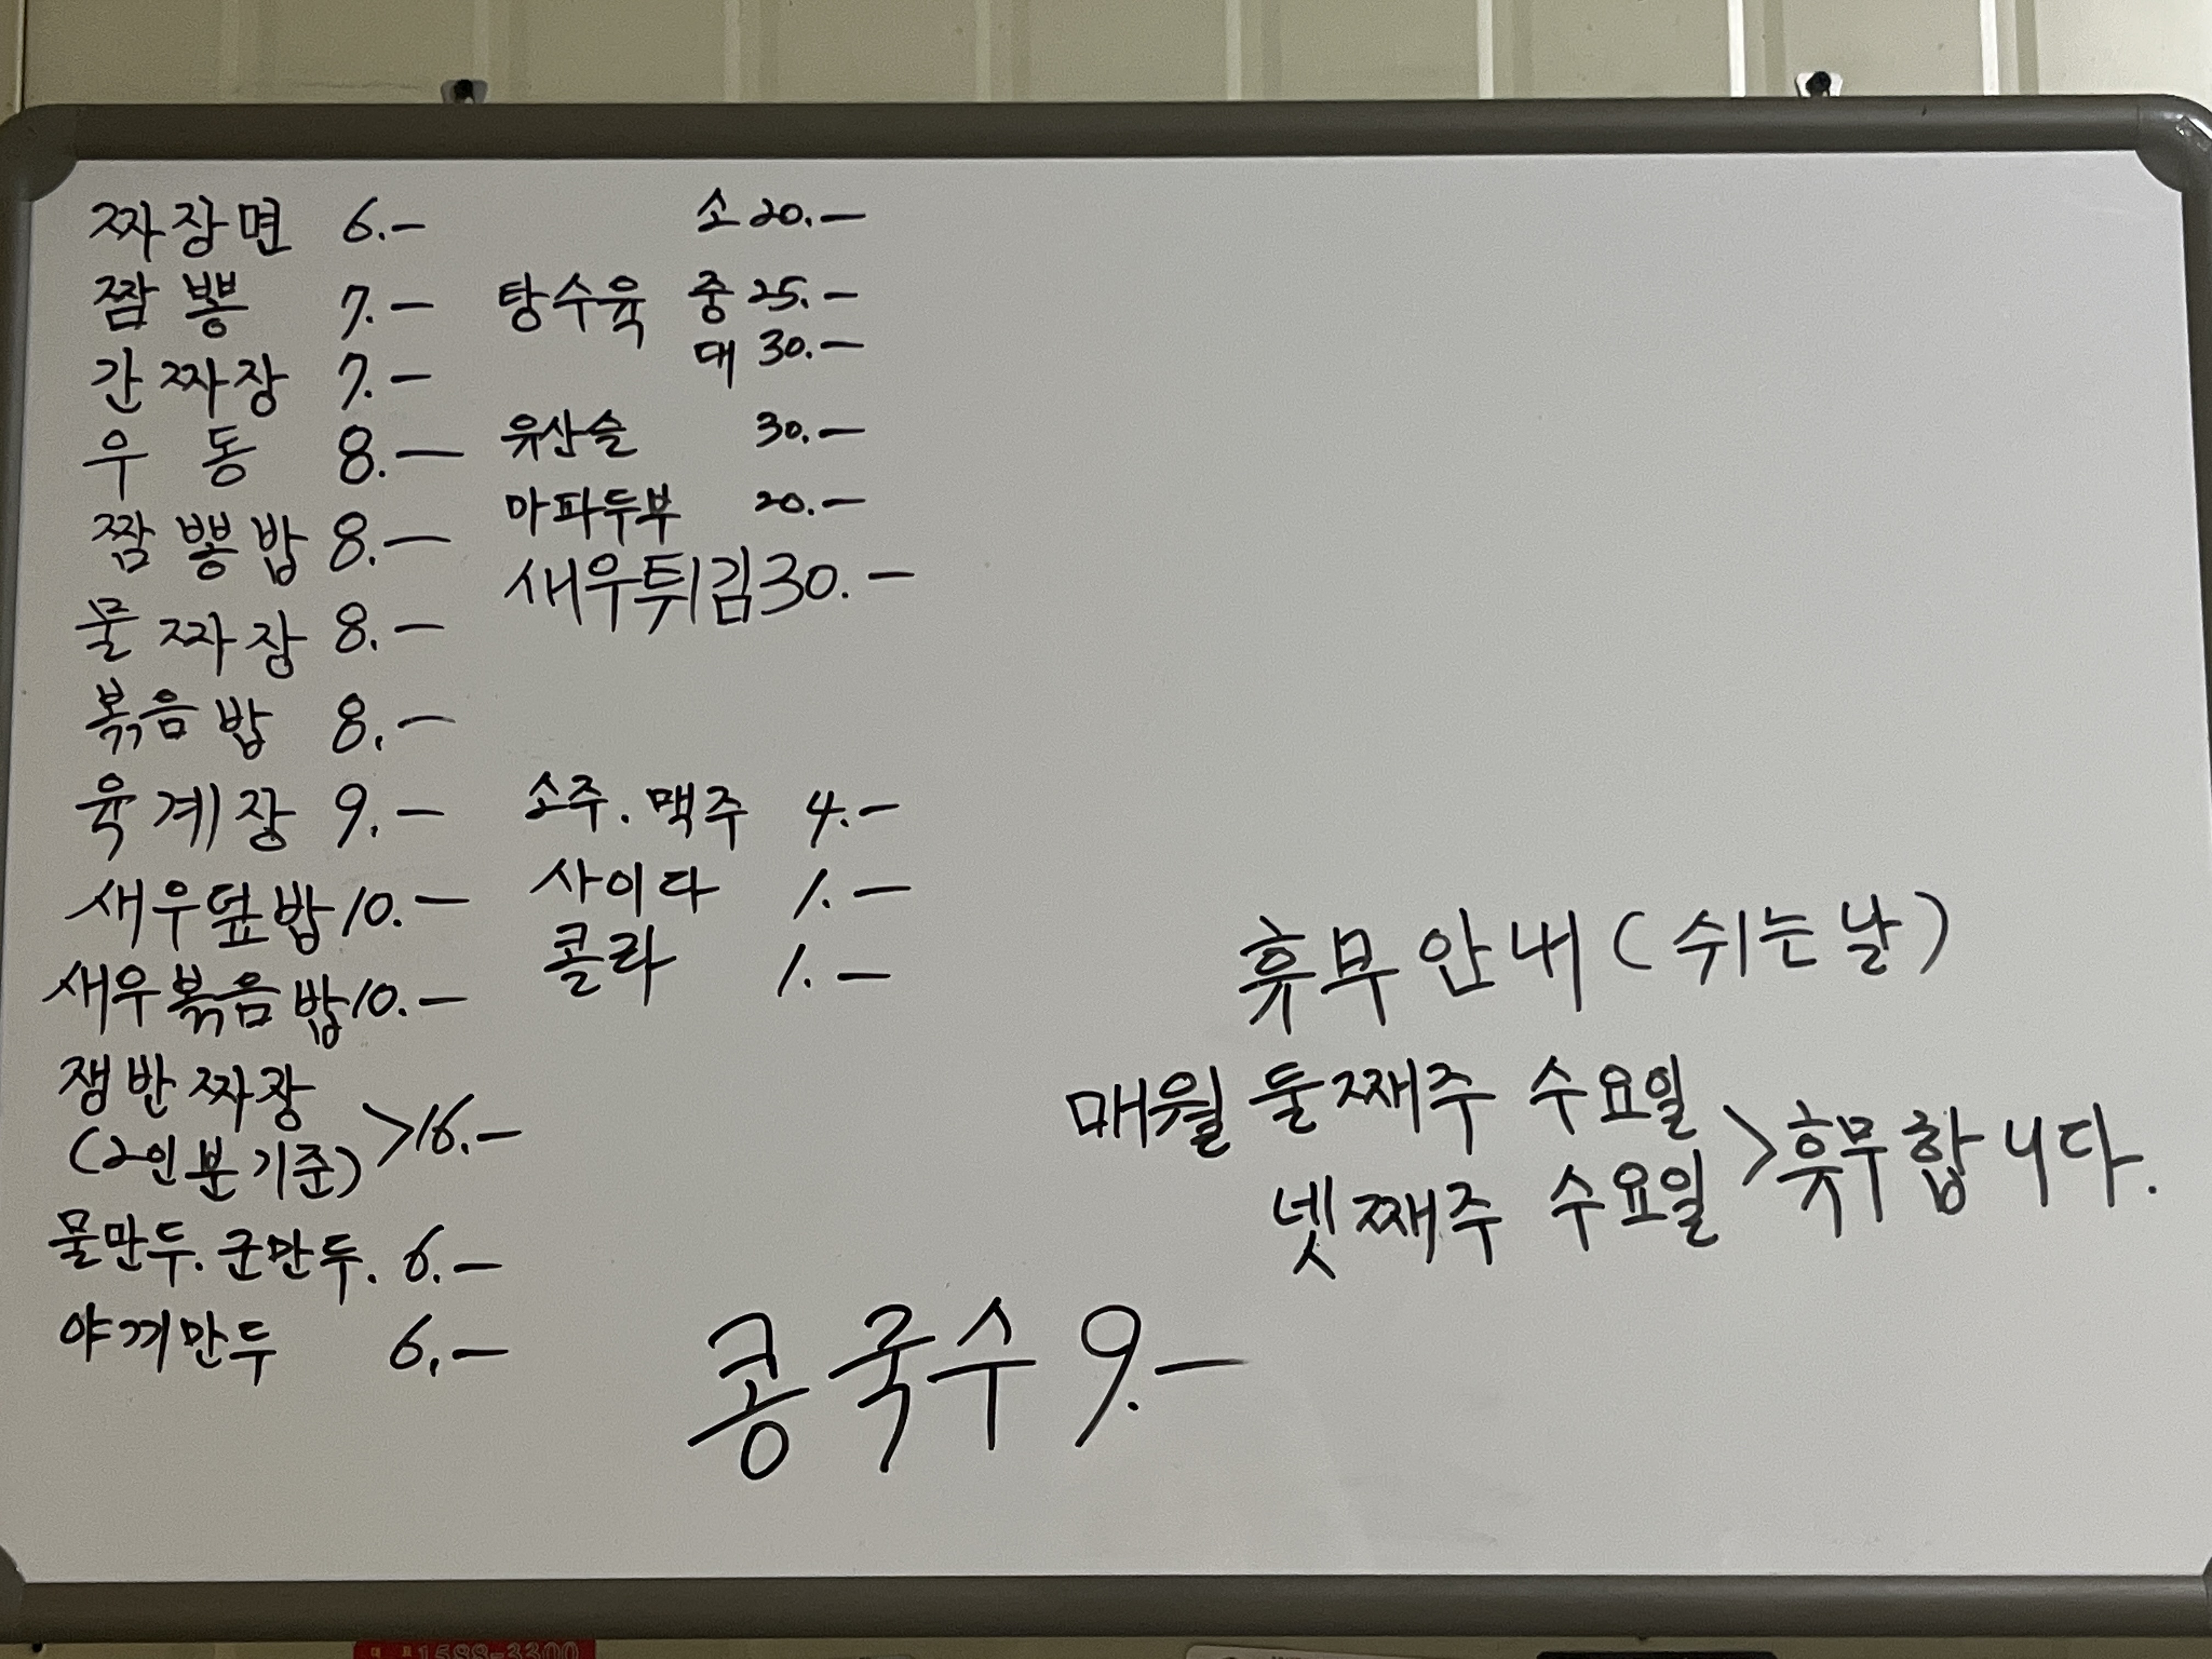 짜장면 6.-
짬뽕 7.-
간짜장 7.-
우동 8.-
짬뽕밥 8.-
물짜장 8.-
볶음밥 8.-
육계장 9.-
새우덮밥 10.-
새우볶음밥 10.-
쟁반짜장
(2인분기준) >16.-
물만두.군만두. 6.-
야끼만두 6.-
소 20.-
탕수육 중 25.-
대 30.-
유산슬 30.-
마파두부 20.-
새우튀김 30.-
소주.맥주 4.-
사이다 1.-
콜라 1.-
콩국수 9.-
휴무안내(쉬는날)
매월 둘째주 수요일
넷째주 수요일 >휴무합니다.
1588-3300